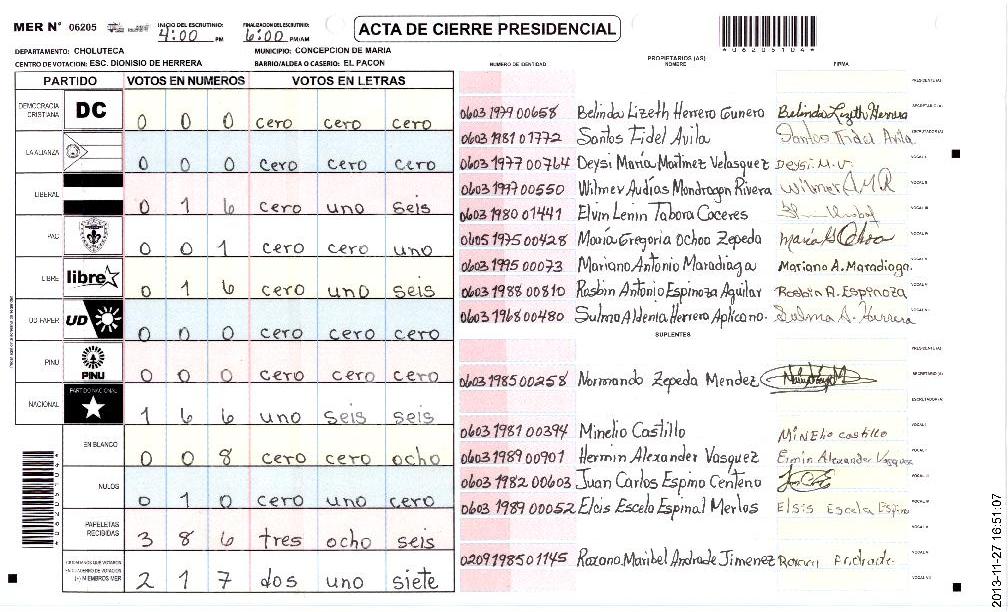 MER N° 06205 INICIO DEL ESCRUTINIO: 4:00 PM FINALIZACION DEL ESCRUTINIO: 6:00 PM/AM
ACTA DE CIERRE PRESIDENCIAL
*06205104*
DEPARTAMENTO: CHOLUTECA MUNICIPIO: CONCEPCION DE MARIA
CENTRO DE VOTACION: ESC. DIONISIO DE HERRERA BARRIO/ALDEA O CASERIO: EL PACON
PARTIDO VOTOS EN NUMEROS VOTOS EN LETRAS
DEMOCRACIA CRISTIANA DC 0 0 0 cero cero cero
LA ALIANZA 0 0 0 cero cero cero
LIBERAL 0 1 6 cero uno seis
PAC 0 0 1 cero cero uno
LIBRE libre 0 1 6 cero uno seis
UD FAPER UD 0 0 0 cero cero cero
PINU PINU 0 0 0 cero cero cero
NACIONAL PARTIDO NACIONAL 1 6 6 uno seis seis
EN BLANCO 0 0 8 cero cero ocho
NULOS 0 1 0 cero uno cero
PAPELETAS RECIBIDAS 3 8 6 tres ocho seis
CIUDADANOS QUE VOTARON EN CUADERNO DE VOTACION (+) MIEMBROS MER 2 1 7 dos uno siete
PROPIETARIOS (AS)
NUMERO DE IDENTIDAD NOMBRE FIRMA
PRESIDENTE(A)
0603 1979 00658 Belinda Lizeth Herrero Gunero Belinda Lizeth Herrera SECRETARIO(A)
0603 1981 01772 Santos Fidel Avila Santos Fidel Avila ESCRUTADOR(A)
0603 1977 00764 Deysi María Martinez Velasquez Deysi M. V. VOCAL I
0603 1997 00550 Wilmer Audias Mondragon Rivera Wilmer A M R VOCAL II
0603 1980 01441 Elvin Lenin Tabora Caceres VOCAL III
0605 1975 00428 María Gregoria Ochoa Zepeda Maria G Ochoa VOCAL IV
0603 1995 00073 Mariano Antonio Maradiaga Mariano A. Maradiaga. VOCAL V
0603 1988 00810 Rosbin Antonio Espinoza Aguilar Rosbin A. Espinoza VOCAL VI
0603 1968 00480 Sulma Aldenia Herrera Aplicano. Sulma A. Herrera VOCAL VII
SUPLENTES
PRESIDENTE(A)
0603 1985 00258 Normando Zepeda Mendez SECRETARIO(A)
ESCRUTADOR(A)
0603 1981 00394 Minelio Castillo Minelio castillo VOCAL I
0603 1989 00901 Hermin Alexander Vasquez Ermin Alexander Vasquez VOCAL II
0603 1982 00603 Juan Carlos Espino Centeno VOCAL III
0603 1989 00052 Elcis Escela Espinal Merlos Elsis Escela Espino VOCAL IV
VOCAL V
0209 1985 01145 Roxana Maribel Andrade Jimenez Roxana Andrade VOCAL VI
VOCAL VII
*06205104*
2013-11-27 16:51:07